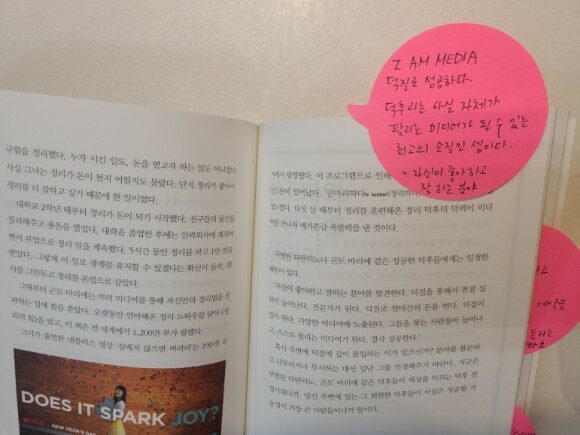 I AM MEDIA
덕질로 성공하다.
덕후라는 사실 자체가
팔리는 미디어가 될 수 있는
최고의 소질인 셈이다.
자신이 좋아하고
잘 하는 분야
구함을 정리했다. 누가 시킨 일도, 돈을 벌고자 하는 일도 아니었다.
사실 그녀는 정리가 돈이 될지 어떨지도 몰랐다. 단지 정리가 좋아서
정리를 더 잘하고 싶기 때문에 한 일이었다.
대학교 2학년 때부터 정리가 돈이 되기 시작했다. 친구들의 공간을
정리해주고 용돈을 벌었다. 대학을 졸업한 후에는 인력회사에 재직하
면서 부업으로 정리 일을 계속했다. 5시간 동안 정리를 하고 1만 엔을
받았다. 그렇게 이 일로 생계를 유지할 수 있겠다는 확신이 들자, 회
사를 그만두고 정리를 본업으로 삼았다.
그때부터 곤도 마리에는 여러 미디어를 통해 자신만의 정리법을 전
파하는 일에 힘을 쏟았다. 오랫동안 연마해온 정리 노하우를 담아 《정
리의 힘》을 썼고, 이 책은 전 세계에서 1,200만 부가 팔렸다.
그녀가 출연한 넷플릭스 영상 '설레지 않으면 버려라'는 190개 국
DOES IT SPARK JOY?
NETFLIX NEW YEAR'S DAY
가에서 방영됐다. 이 프로그램으로 인하
신드롬이 일어났다. '곤마리하다
정도였다. 다섯 살 때부터 정리를 훈련해온 정리 덕후의 덕력이 미디
어를 만나자 메가톤급 폭발력을 낸 것이다.
쿠엔틴 타란티노나 곤도 마리에 같은 성공한 덕후들에게는 일정한
패턴이 있다.
'자신이 좋아하고 잘하는 분야를 발견한다. 덕질을 통해서 점점 실
력이 늘어난다. 전문가가 된다. 덕질로 얼마간의 돈을 번다. 덕질이
업이 된다. 다양한 미디어에 노출된다. 그들을 찾는 사람들이 늘어나
고, 스스로 팔리는 미디어가 된다. 결국 성공한다.'
혹시 주변에 덕질에 깊이 몰입하는 이가 있으신가? 분야를 불문하
고 나무라거나 무시하는 대신 일단 그를 인정해주기 바란다. 지금은
쿠엔틴 타란티노, 곤도 마리에 같은 덕후들이 세상을 이끄는 덕후 전
성시대니까. 당신 주변에 있는 그 희한한 덕후들이 사실은 성공할 가
능성이 가장 큰 사람들이니까 말이다.